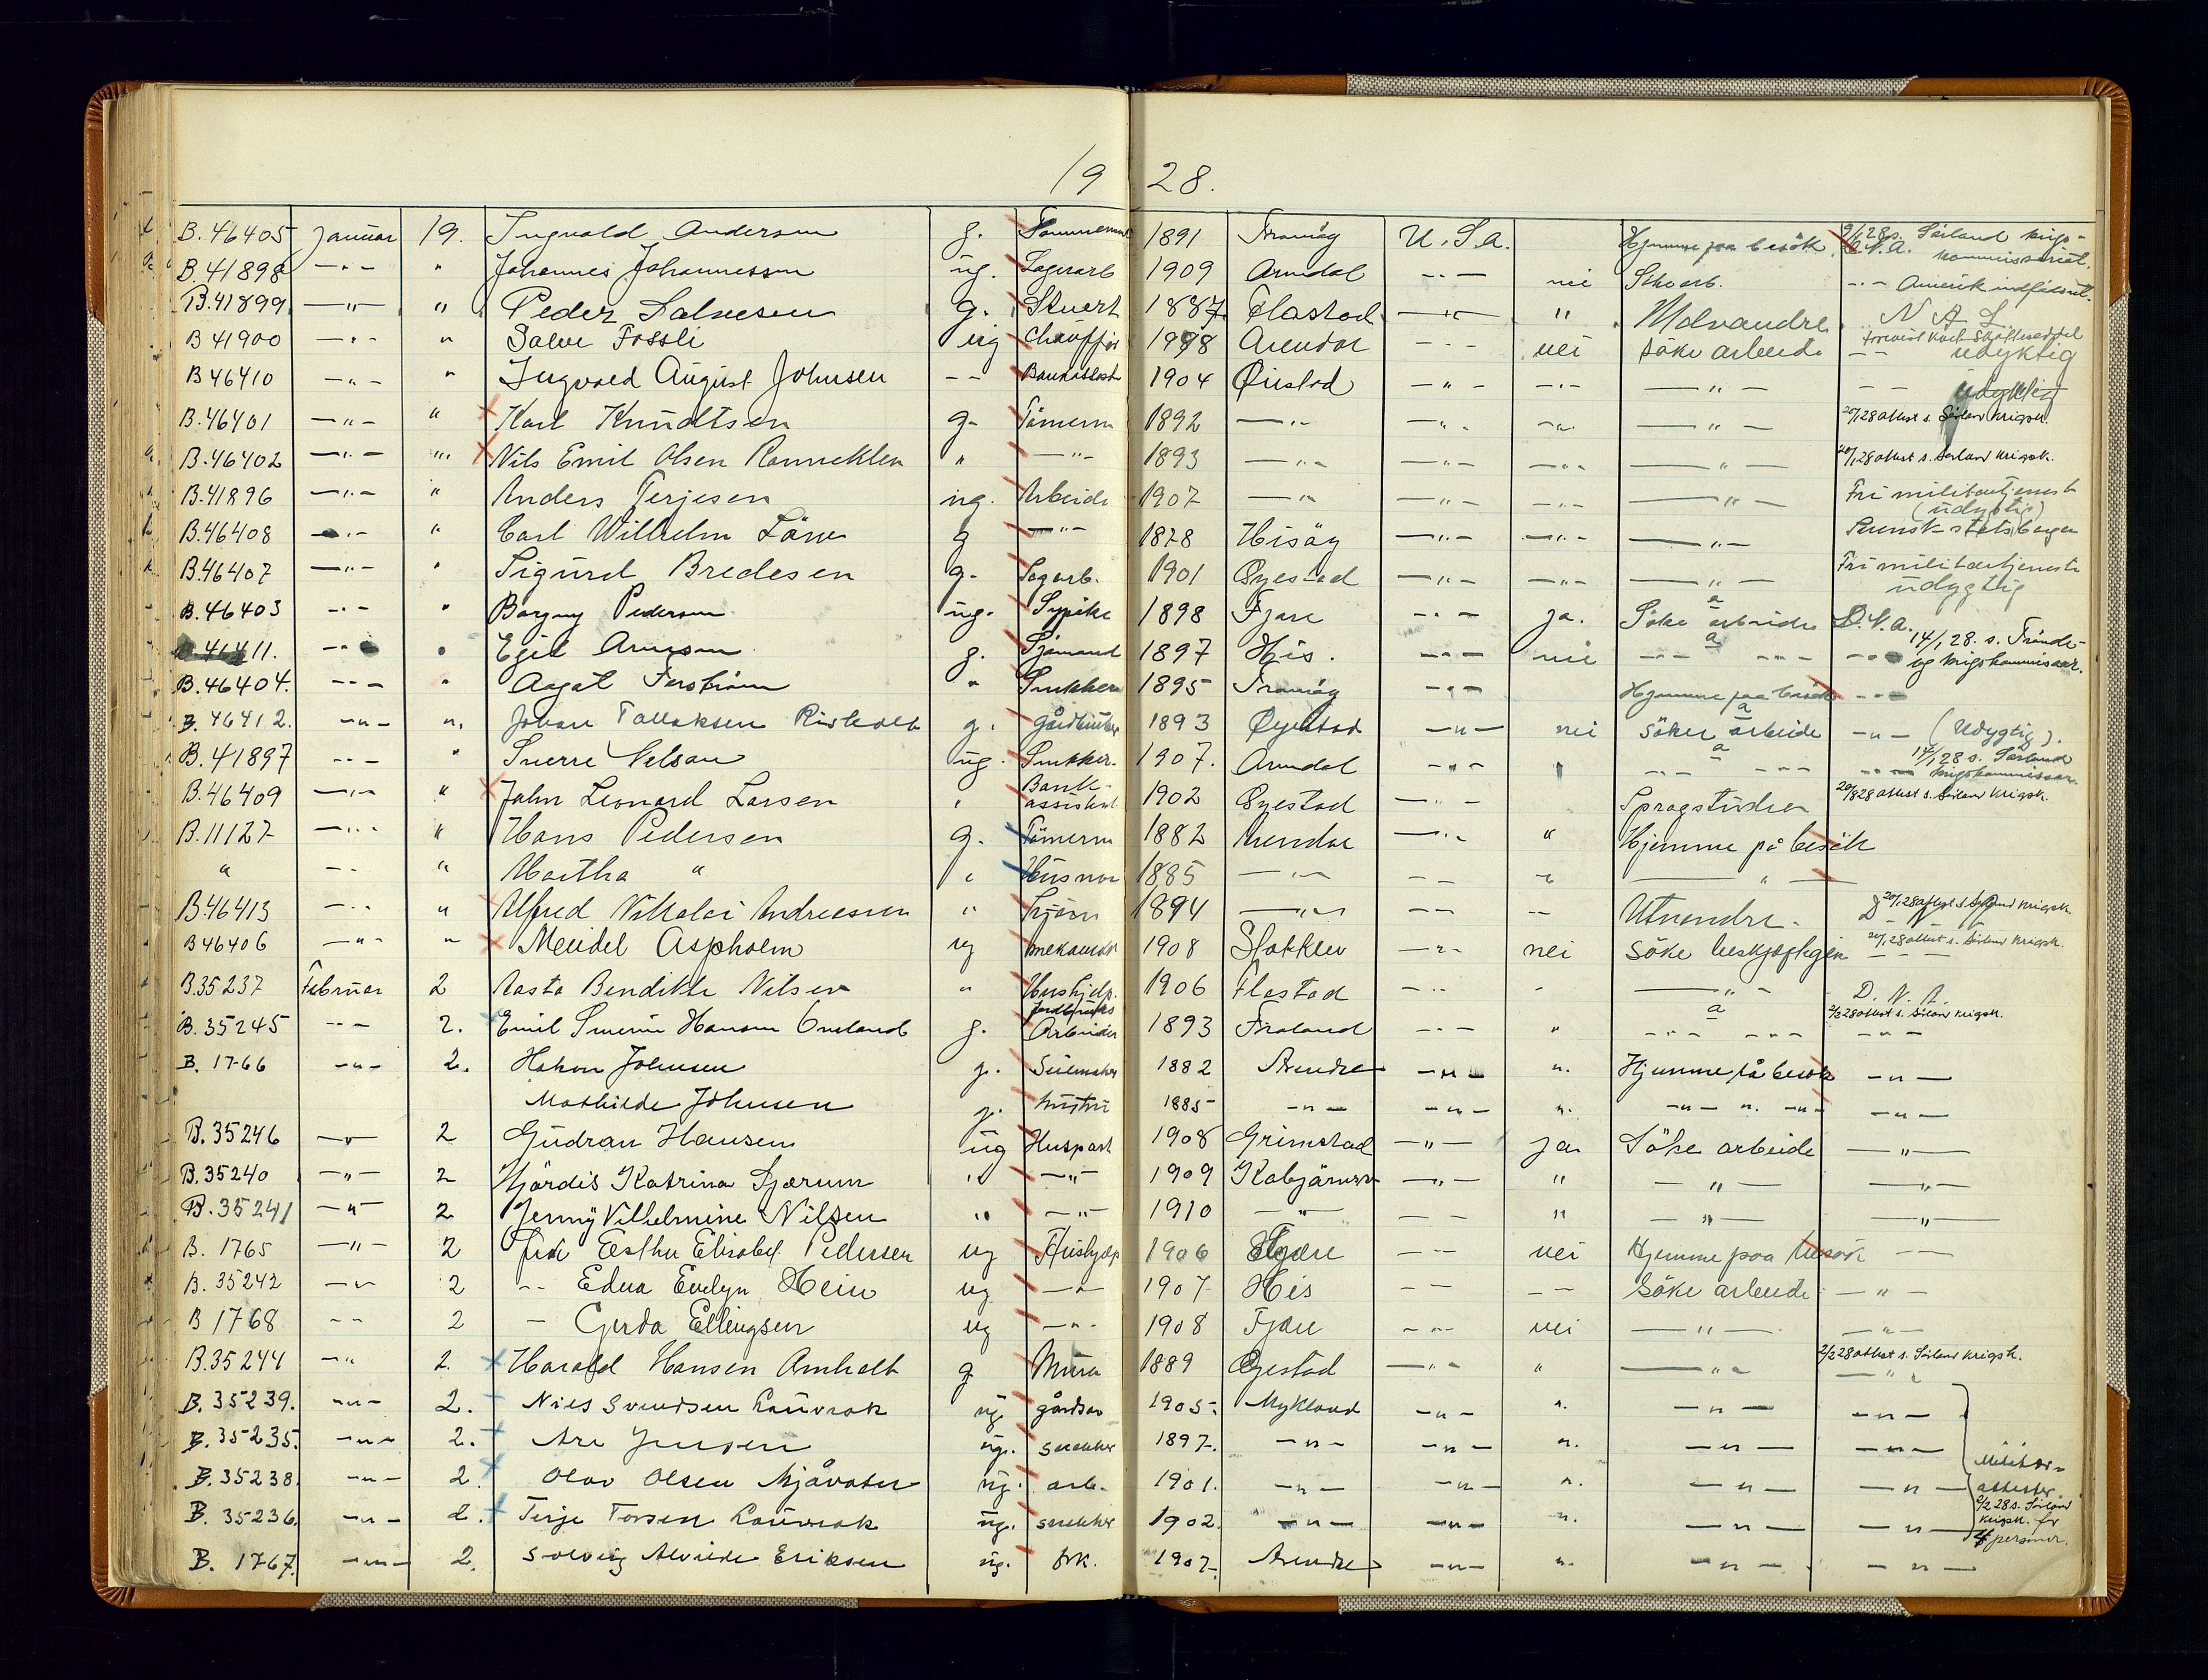 19 28.
B.46405 Januar 19. Ingvald Anderson g. 1891 Tromöy U.S.A. Hjemme paa besök 9/1 28 s. Sörland krigs-kommissariat. D.N.A.
B.41898 —"— " Johannes Johannessen ug. Lagerarb 1909 Arendal —"— nei Sk arb. —"— Amerik
B.41899 —"— " Peder Salvesen g. Stuert 1887 Flastad —"— " Udvandre N A L
B 41900 —"— " Salve Fossli ug Chauffør 1908 Arendal —"— nei Söke arbeide —"— udyktig
B 46410 —"— " Ingvald August Johnsen —"— 1904 Öiestad —"— —"— —"— —"— udyktig
B.46401 —"— " Karl Knudtsen g. Tömerm 1892 —"— —"— —"— —"— 20/1 28 attest s. Sörland krigsk.
B.46402 —"— " Nils Emil Olsen Rannekleiv " —"— 1893 —"— —"— —"— —"— 20/1 28 attest s. Sörland krigsk.
B.41896 —"— " Anders Terjesen ug. Arbeide 1907 —"— —"— —"— —"— Fri militærtjeneste (udygtig)
B.46408 —"— " Carl Wilhelm g —"— 1878 Hisöy —"— —"— —"— Svensk statsborger
B.46407 —"— " Sigurd Bredesen g. Sagarb. 1901 Öyestad —"— —"— —"— Fri militærtjeneste udygtig
B.46403 —"— " Borgny Pedersen ug. Sypike 1898 Fjære —"— ja. Söke arbeide D.N.A.
B.46411. —"— " Egil g. Sjömand 1897 His. —"— nei —"— —"— 14/1 28. s. Trönde- og krigskommissar.
B.46404. —"— " Aagot " 1895 Tromöy —"— Hjemme paa besök —"—
B.46412. —"— ". Johan Tallaksen Risholt g. 1893 Öyestad —"— nei Söker arbeide —"— (Udygtig).
B.41897 —"— " Sverre Nelson ug. Snekker. 1907. Arendal —"— " —"— —"— 14/1 28 s. Sörland krigskommissar.
B.46409 —"— " John Leonard Larsen " Bank-assistent 1902 Öyestad —"— Sprogstudier 20/1 28 attest s. Sörland krigsk.
B.11127 —"— " Hans Pedersen g. Tömerm 1882 Arendal —"— " Hjemme på besök
" —"— " Martha " " Husmor 1885 —"— —"— " —"—
B.46413 —"— " Alfred Nikolai Andreassen " 1894 —"— —"— —"— Utvandre. 20/1 28 attest s. krigsk.
B46406 —"— " Meidel Aspholm ug mekaniker 1908 Stokken —"— nei Söke beskjeftigen 20/1 28 attest s. Sörland krigsk.
B.35237 Februar 2 Aasta Bendikte Nilsen " Hushjelp. 1906 Flastad —"— " —"— D.N.A.
B.35245 —"— 2. Emil Hansen g. Jordbruks Arbeider 1893 Froland —"— " —"— 2/2 28 attest s. Sörland krigsk.
B.1766 —"— 2. Hakon Johnsen g. Seilmaker 1882 Arendal —"— ". Hjemme på besök —"—
Mathilde Johnsen g. hustru 1885 —"— —"— ". —"— —"—
B.35246 —"— 2 Gudrun Hansen ug Huspost 1908 Grimstad —"— ja Söke arbeide —"—
B.35240 —"— 2 Hjördis Katrina " —"— 1909 —"— " —"— —"—
B.35241 —"— 2 Jenny Vilhelmine Nilsen " —"— 1910 —"— —"— " —"— —"—
B. 1765 —"— 2 frk Esther Elisabet Pedersen ug Hushjelp 1906 Fjære —"— nei Hjemme paa besök —"—
B. 35242 —"— 2 —"— Edna Evelyn Hein ug —"— 1907 His —"— —"— Söke arbeide —"—
B 1768 —"— 2 — Gerda Ellingsen ug —"— 1908 Fjære —"— nei —"— —"—
B.35244 —"— 2. Harald Hansen Amholt g Murer 1889 Öyestad —"— " —"— 2/2 28 attest s. Sörland krigsk.
B. 35239. —"— 2. Nils Svendsen Lauvrak ug. gårdsar 1905. Mykland —"— ". —"— —"—
B. 35235. —"— 2. Are Jensen ug. snekker 1897. —"— —"— ". —"— —"—
B. 35238. —"— 2. Olav Olsen Mjåvatn ug. arb. 1901. —"— —"— ". —"— —"— Militær-attester
B. 35236. —"— 2. Terje Torsen Lauvrak ug. snekker 1902. —"— —"— ". —"— —"— 2/2 28 s. Sörland krigsk. for 4 personer.
B. 1767. —"— 2. Solveig Alvilde Eriksen ug. frk. 1907. Arendal —"— ". —"— —"—